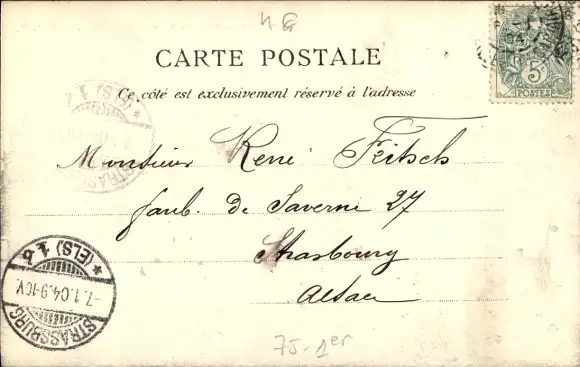 4 G
CARTE POSTALE
Ce côté est exclusivement réservé à l'adresse
5
POSTES
Monsieur René Fritsch
faub. de Saverne 27
Strasbourg
Alsace
STRASSBURG
* (ELS) 1 b
-7.1.04.9-10V.
75-1er